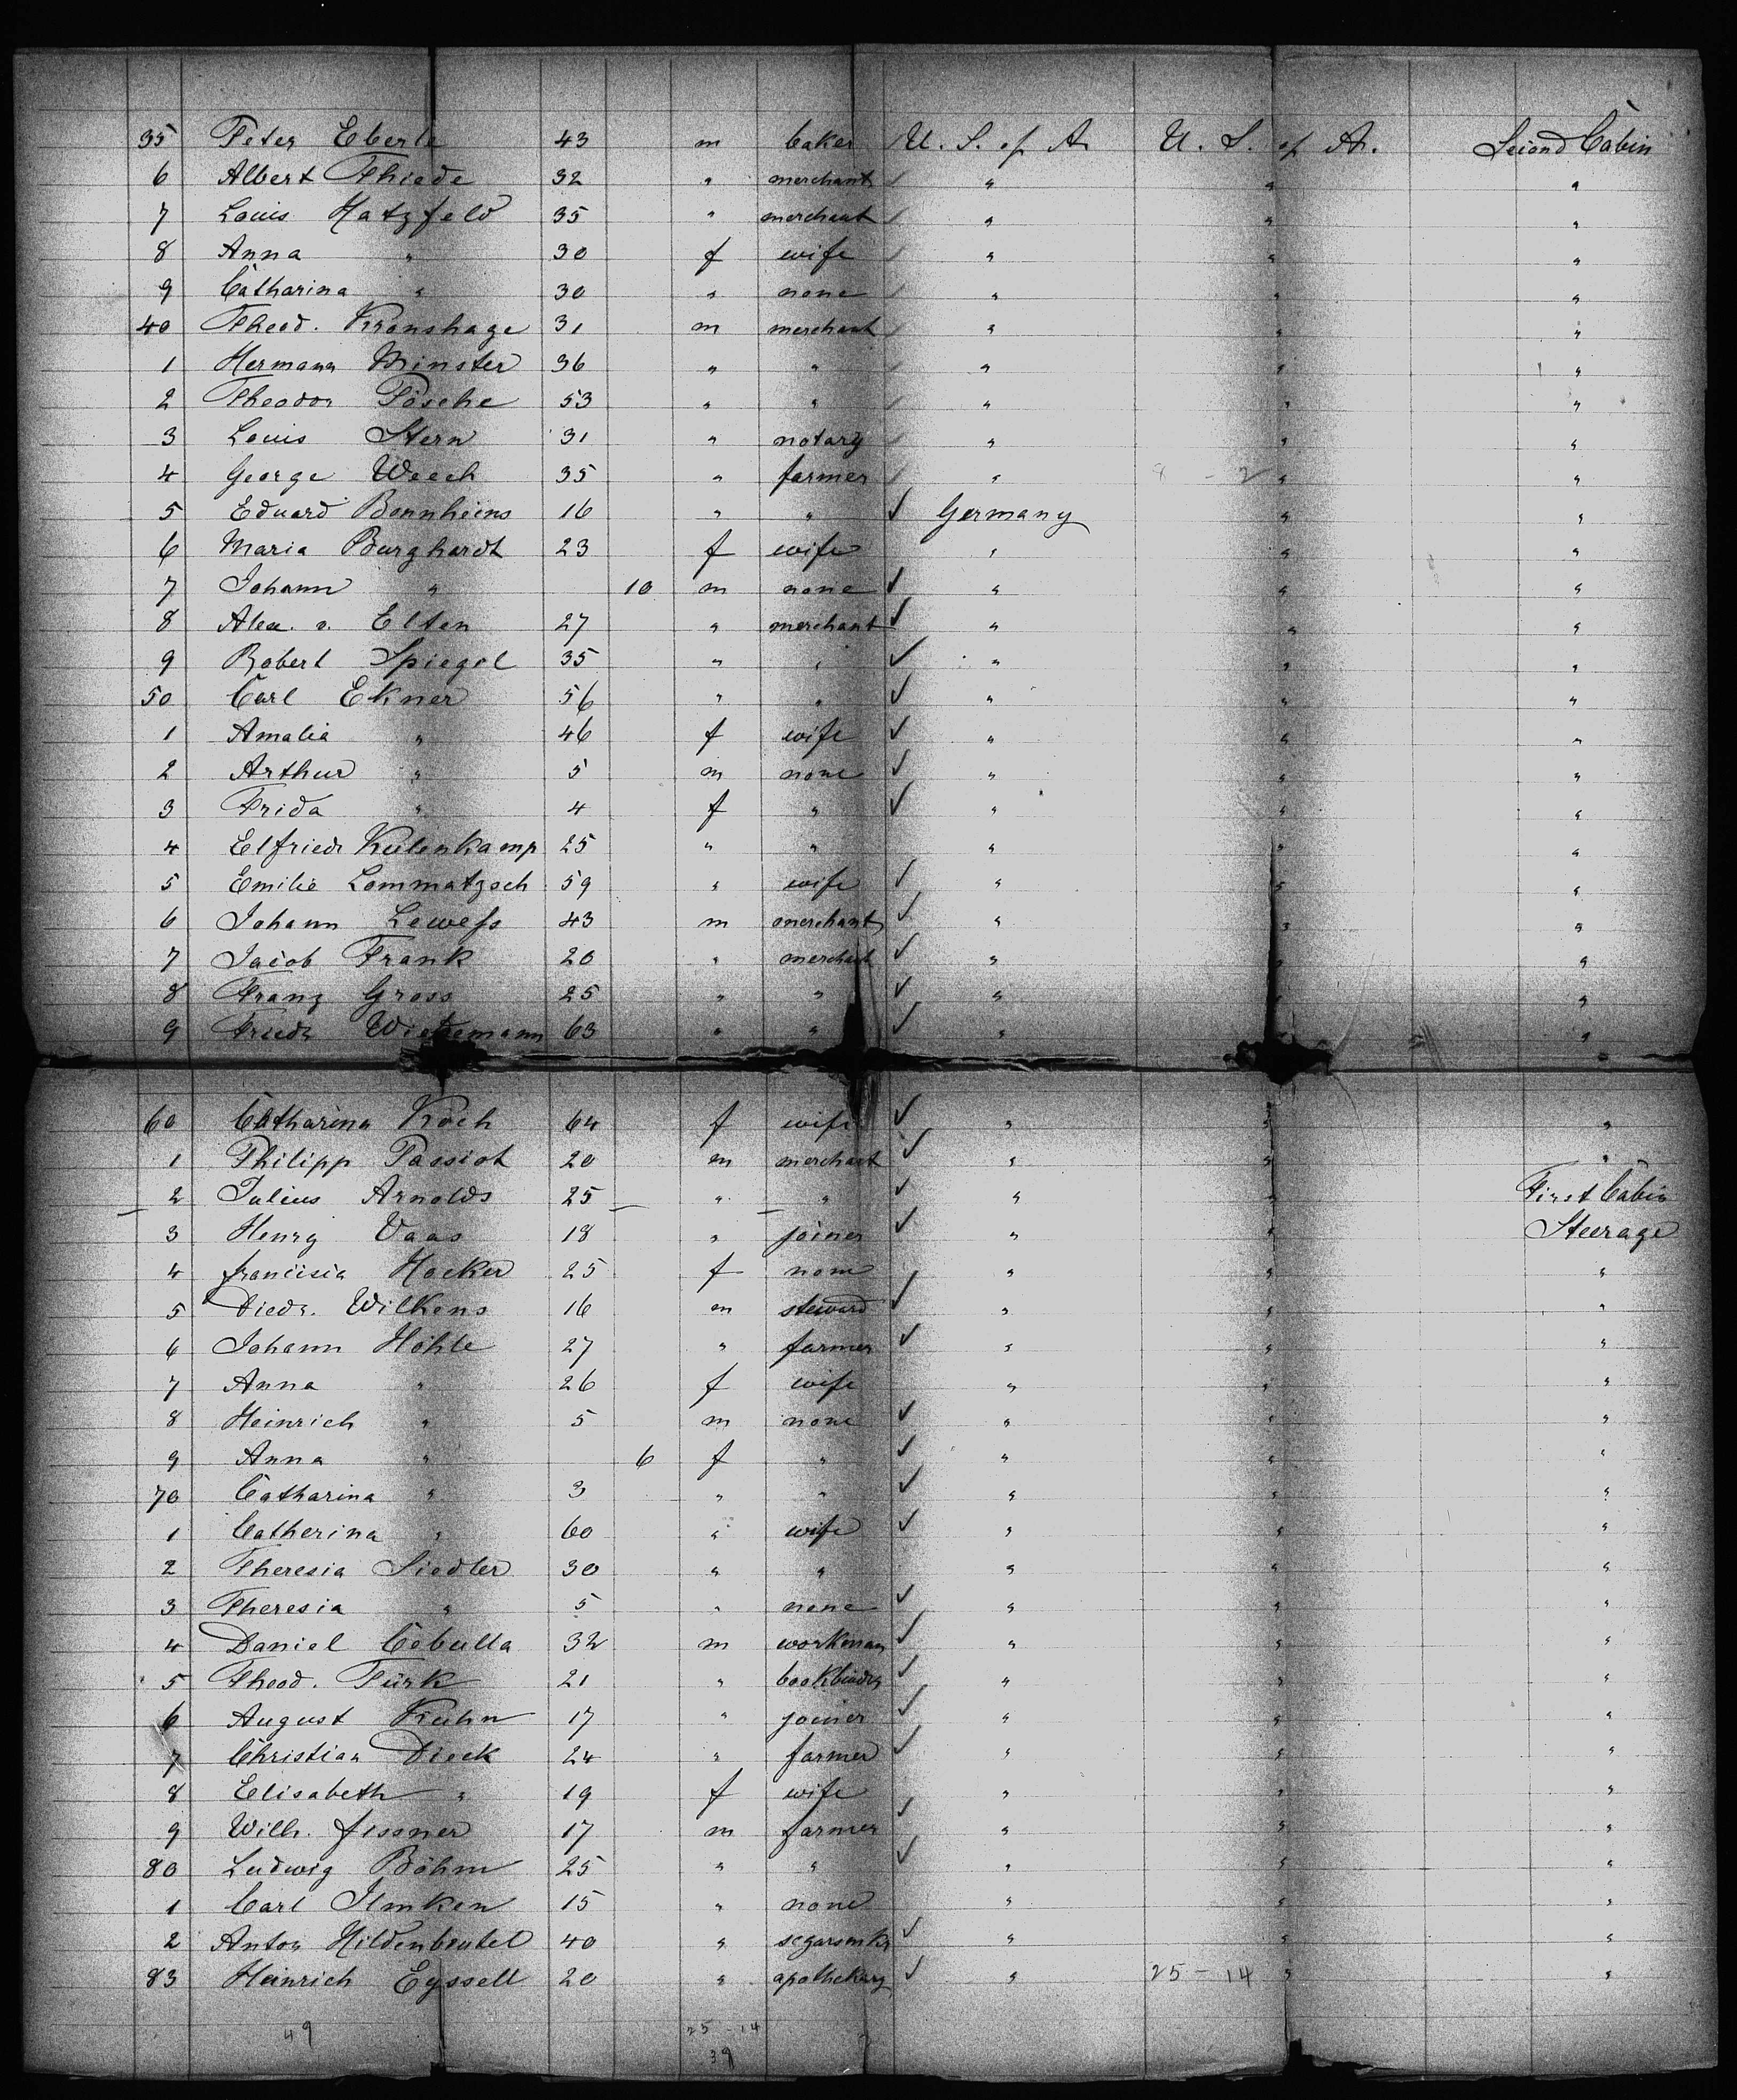 35 Peter Eberle 43 m baker U. S. of A. U. S. of A. Second Cabin
6 Albert Thiede 32 " merchant " " "
7 Louis Hatzfeld 35 " merchant " " "
8 Anna " 30 f wife " " "
9 Catharina " 30 " none " " "
40 Theod. Kronshage 31 m merchant " " "
1 Hermann Minster 36 " " " " "
2 Theodor Pösche 53 " " " " "
3 Louis Stern 31 " notary " " "
4 George Weech 35 " farmer " 8 - 2 " "
5 Eduard Bonnheims 16 " " ✓ Germany " "
6 Maria Burghardt 23 f wife " " "
7 Johann " 10 m none ✓ " " "
8 Alex. v. Elten 27 " merchant ✓ " " "
9 Robert Spiegel 35 " " ✓ " " "
50 Carl Ekner 56 " " ✓ " " "
1 Amalia " 46 f wife ✓ " " "
2 Arthur " 5 m none ✓ " " "
3 Frida " 4 f " ✓ " " "
4 Elfriede Kulenkamp 25 " " " " "
5 Emilie Lommatzsch 59 " wife ✓ " " "
6 Johann Lewess 43 m merchant ✓ " " "
7 Jacob Frank 20 " merchant ✓ " " "
8 Franz Gross 25 " " ✓ " " "
9 Friedr Wiedemann 63 " " ✓ " " "
60 Catharina Koch 64 f wife ✓ " " "
1 Philipp Passiot 20 m merchant ✓ " " "
2 Julius Arnolds 25 " " ✓ " " First Cabin
3 Henry Vaas 18 " joiner ✓ " " Steerage
4 francisia Hocker 25 f none " " "
5 Diedr. Wilkens 16 m steward ✓ " " "
6 Johann Höhle 27 " farmer ✓ " " "
7 Anna " 26 f wife " " "
8 Heinrich " 5 m none ✓ " " "
9 Anna " 6 f " ✓ " " "
70 Catharina " 3 " " ✓ " " "
1 Catherina " 60 " wife ✓ " " "
2 Theresia Siedler 30 " " " " "
3 Theresia " 5 " none ✓ " " "
4 Daniel Cebulla 32 m workman ✓ " " "
5 Theod. Türk 21 " bookbinder ✓ " " "
6 August Kuhn 17 " joiner ✓ " " "
7 Christian Dieck 24 " farmer ✓ " " "
8 Elisabeth " 19 f wife " " "
9 Wilh. fissner 17 m farmer ✓ " " "
80 Ludwig Böhm 25 " " ✓ " " "
1 Carl Ilmken 15 " none " " "
2 Anton Hildenbeutel 40 " segarsmkr ✓ " " "
83 Heinrich Eyssell 20 " apothekary ✓ " 25 - 14 " "
49 25 - 14
39